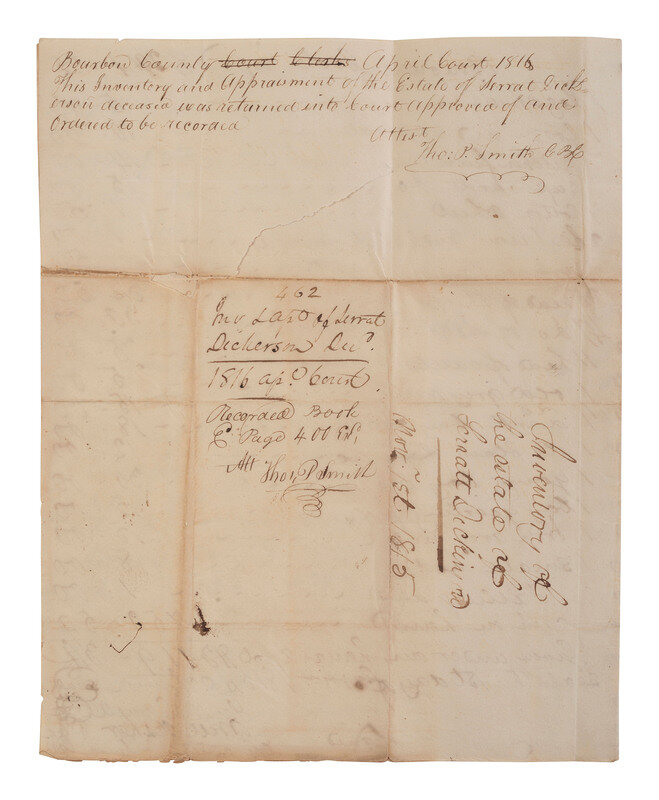 Bourbon County Court Clerks April Court 1816
This Inventory and Appraisment of the Estate of Serrat Dick
erson deceasd was returned into Court Approved of and
Ordered to be recorded
Attest
Tho: P. Smith C B C
462
Inv & Apt of Serrat
Dickerson Decd.
1816 apl. Court
Recorded Book
E Page 400
Att
Tho. P. Smith
Inventory of
the estate of
Seratt Dickinson
Novr. 1st 1815